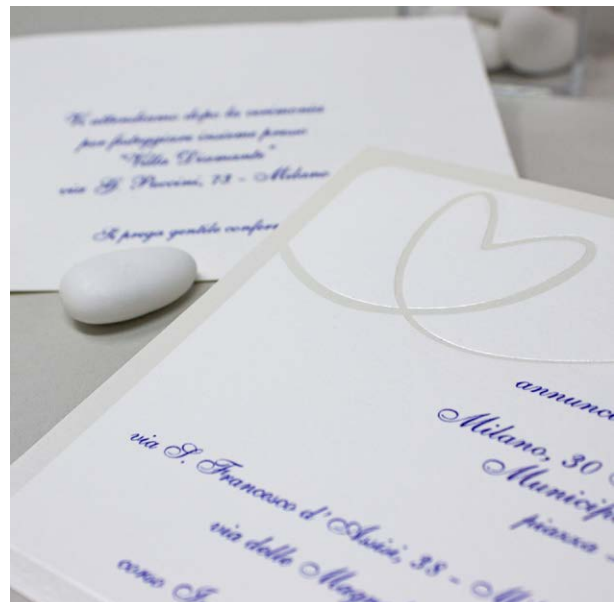 Vi attendiamo dopo la cerimonia
per festeggiare insieme presso
"Villa Diamante"
via G. Puccini, 73 - Milano
Si prega gentile
annunc
Milano, 30
Municip
piazza
via S. Francesco d'Assisi, 38 -
via delle
corso